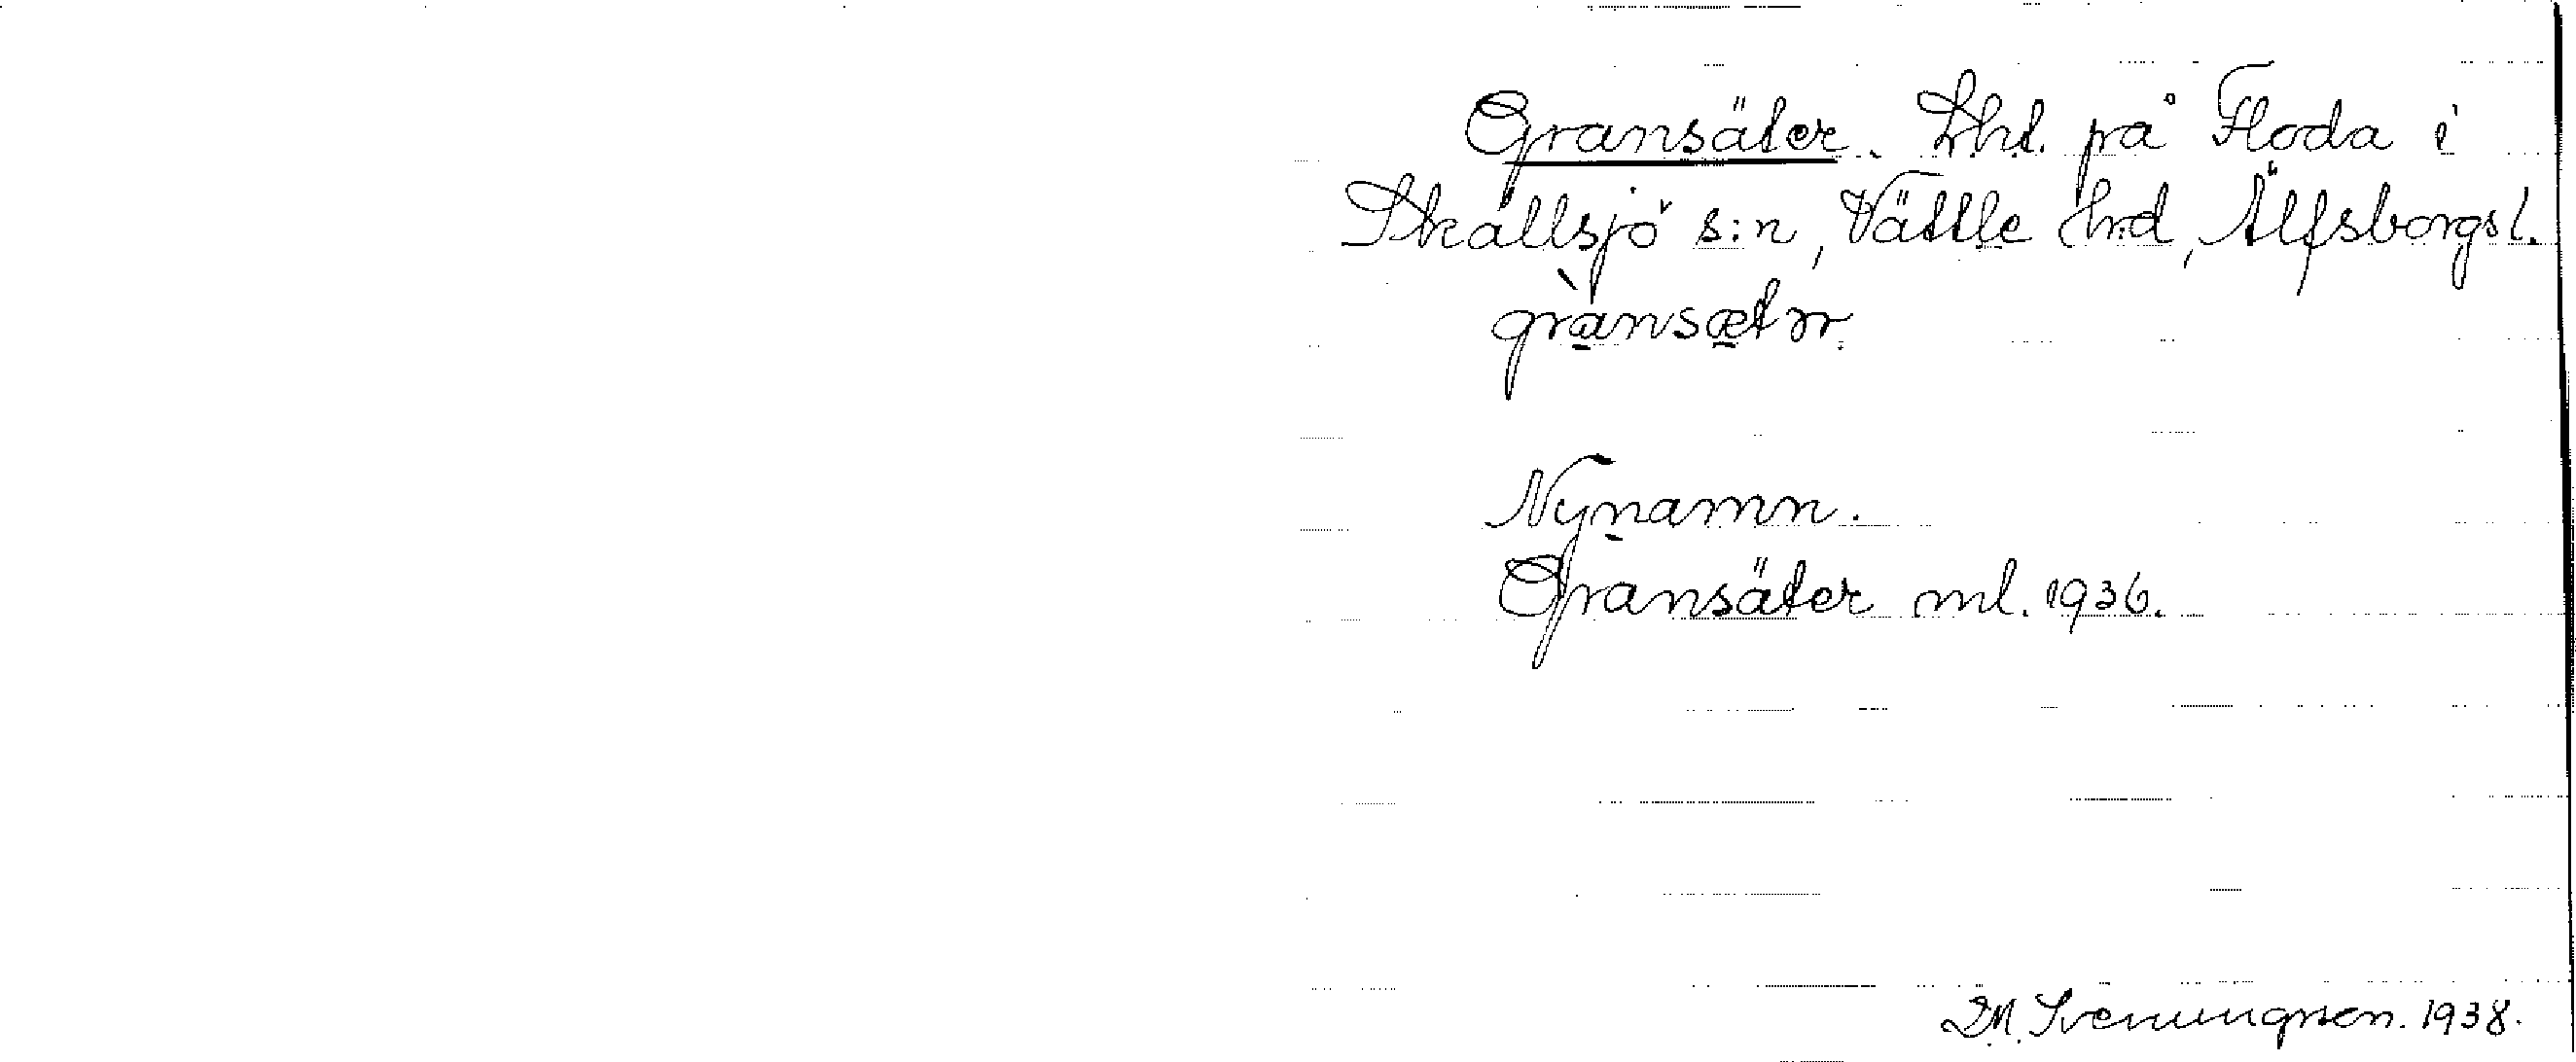 Gransäter. Lht. på Floda i
Skallsjö s:n, Vättle hrd, Älfsborgs l.
grànsætər.
Nynamn.
Gransäter ml. 1936.
Svenungsson. 1938.